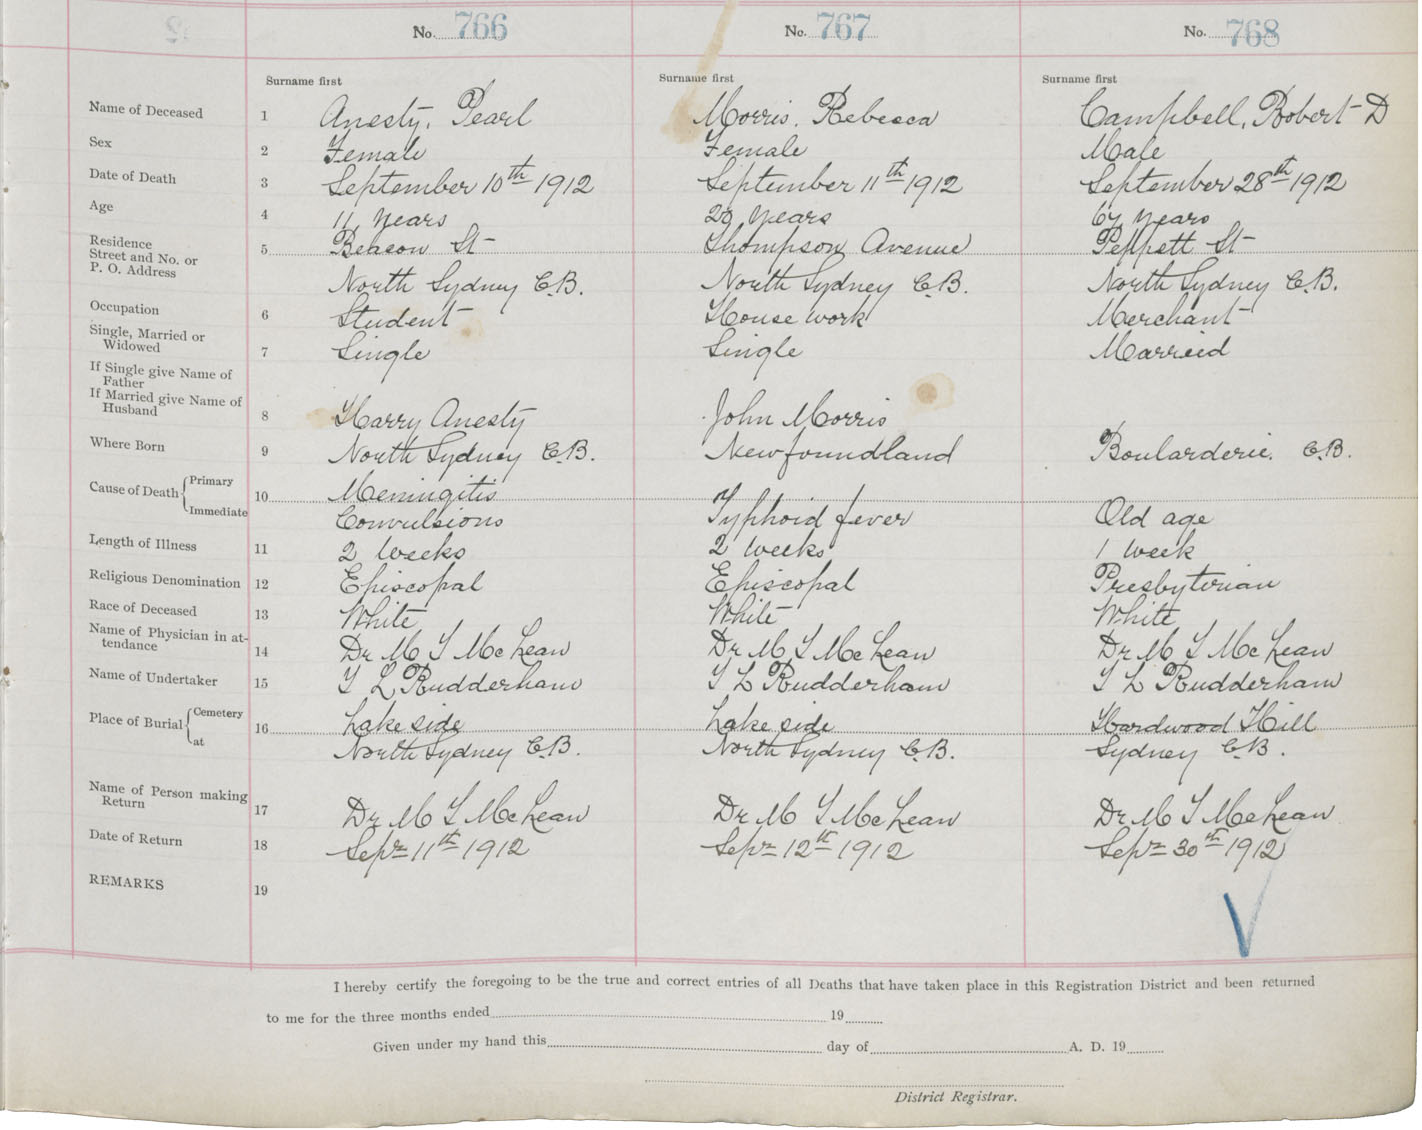 No. 766 No. 767 No. 768
Surname first Surname first Surname first
Name of Deceased 1 Anesty, Pearl Morris, Rebecca Campbell, Robert D
Sex 2 Female Female Male
Date of Death 3 September 10th 1912 September 11th 1912 September 28th 1912
Age 4 11 years 20 years 67 years
Residence
Street and No. or 5 Beacon St Thompson Avenue Peppett St
P. O. Address North Sydney C.B. North Sydney C.B. North Sydney C.B.
Occupation 6 Student House work Merchant
Single, Married or
Widowed 7 Single Single Married
If Single give Name of
Father
If Married give Name of
Husband 8 Harry Anesty John Morris
Where Born 9 North Sydney C.B. Newfoundland Boularderie. C.B.
Cause of Death Primary 10 Meningitis
Immediate Convulsions Typhoid fever Old age
Length of Illness 11 2 weeks 2 weeks 1 week
Religious Denomination 12 Episcopal Episcopal Presbyterian
Race of Deceased 13 White White White
Name of Physician in at-
tendance 14 Dr M T McLean Dr M T McLean Dr M T McLean
Name of Undertaker 15 T L Rudderham T L Rudderham T L Rudderham
Place of Burial Cemetery 16 Lake side Lake side Hardwood Hill
at North Sydney C.B. North Sydney C.B. Sydney C.B.
Name of Person making
Return 17 Dr M T McLean Dr M T McLean Dr M T McLean
Date of Return 18 Sept 11th 1912 Sept 12th 1912 Sept 30th 1912
REMARKS 19
I hereby certify the foregoing to be the true and correct entries of all Deaths that have taken place in this Registration District and been returned
to me for the three months ended 19
Given under my hand this day of A. D. 19
District Registrar.